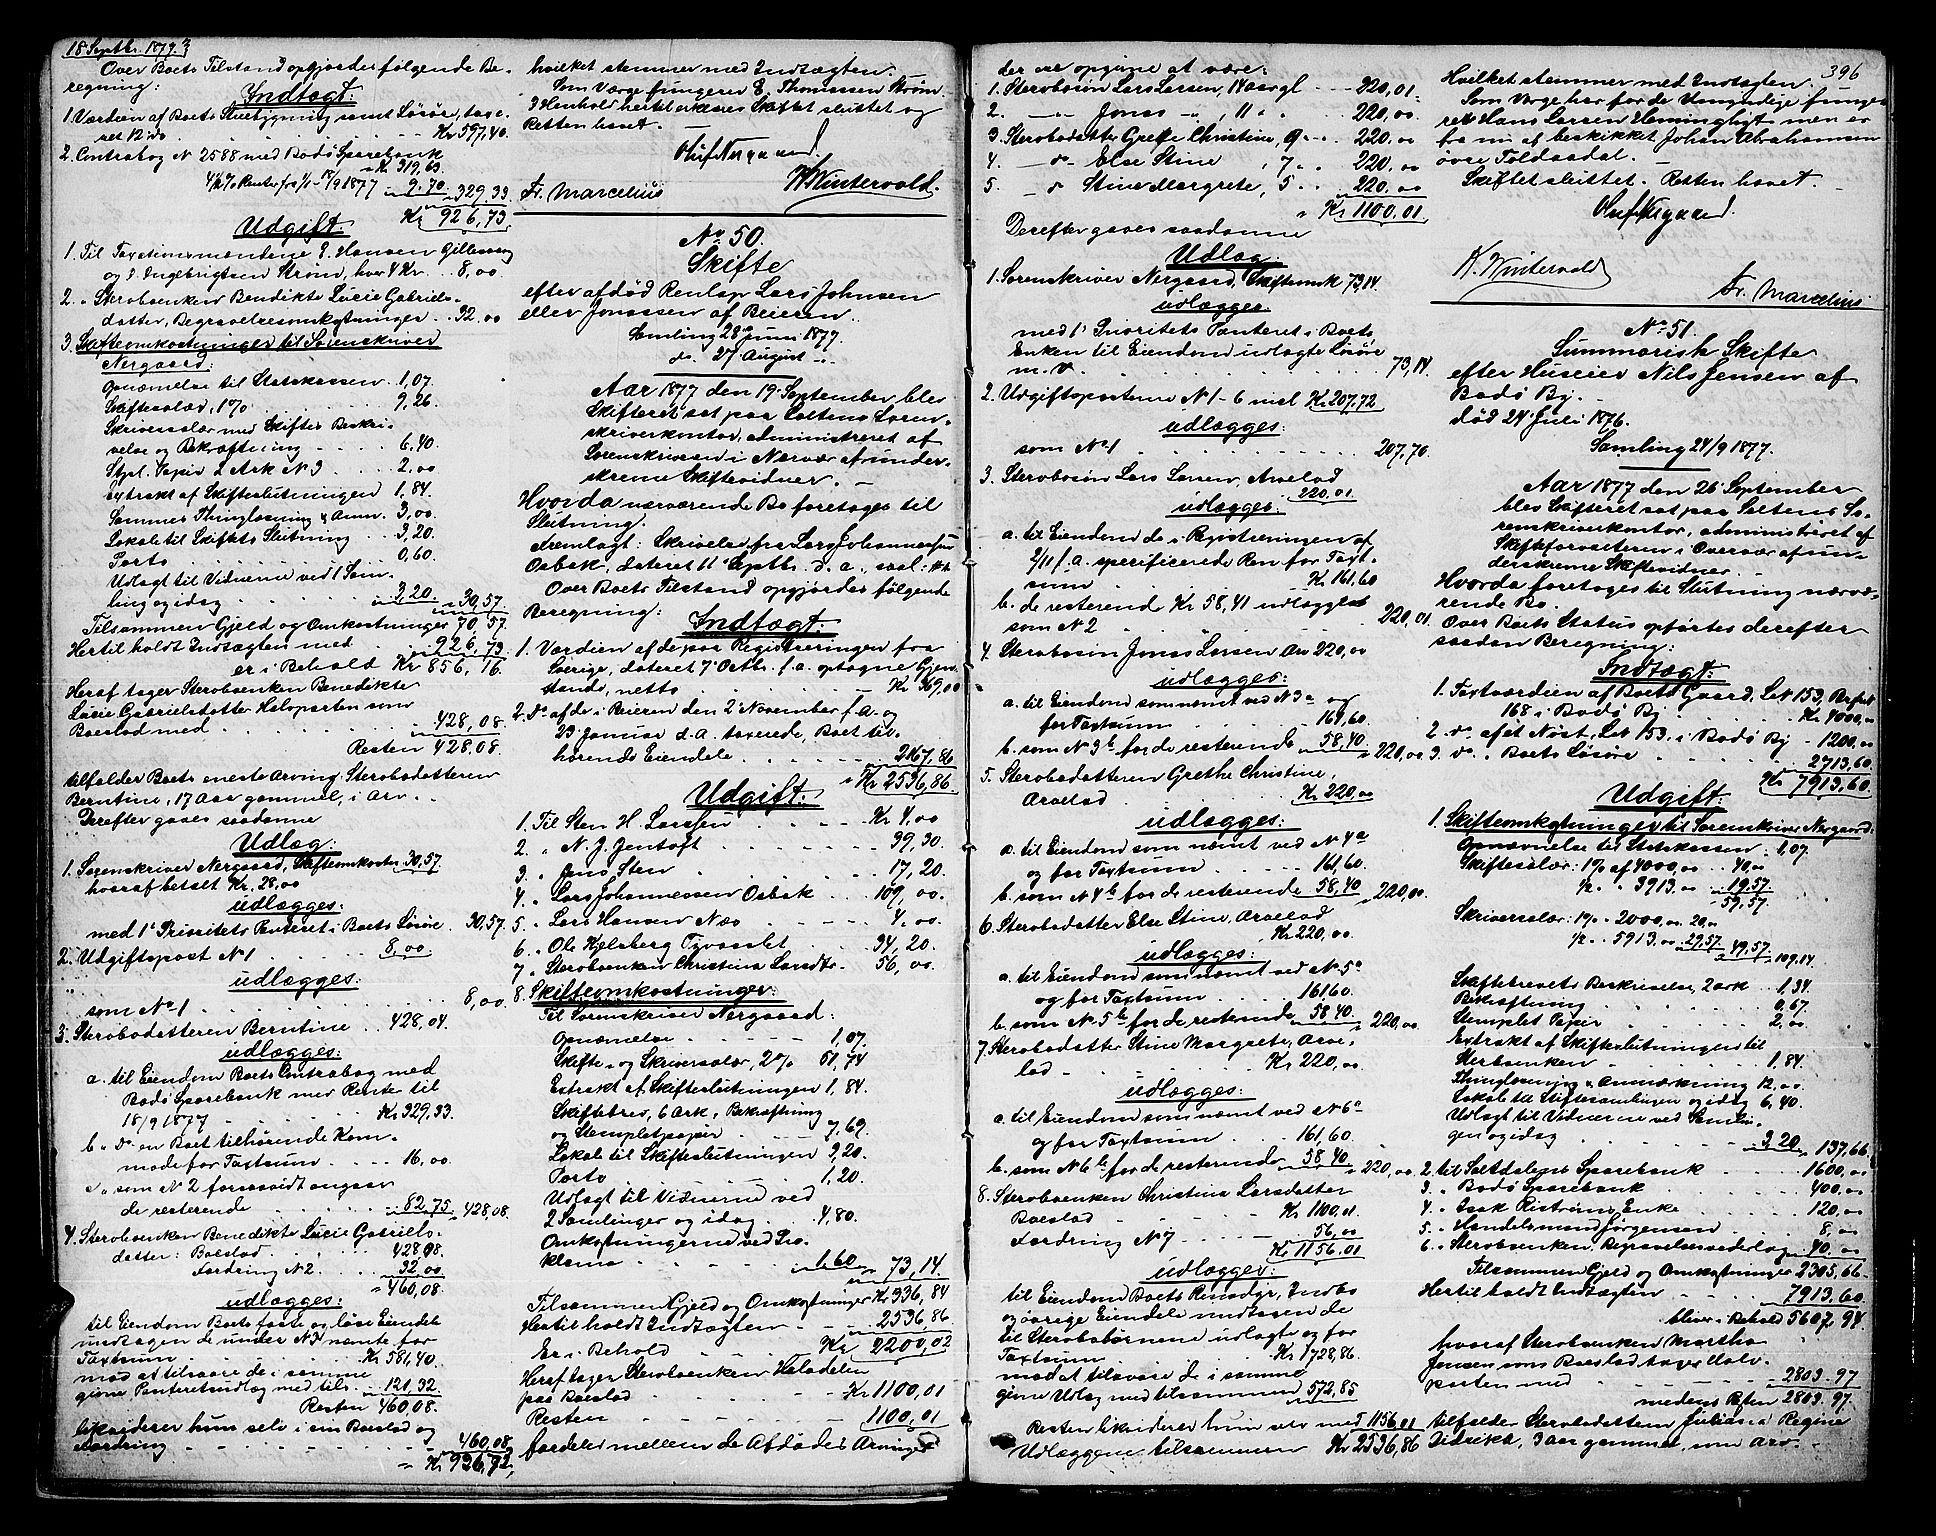 18 Septbr. 1877.
Over Boets Tilstand opgjordes følgende Be-
regning:
Indtægt:
1. Værdien af Boets Stuebygning samt Løsøre, taxe-
ret 12 ds. Kr 597,40.
2. Contrabog N 2588 med Bodø Sparebank
Kr 319,63
4½ % Renter fra 1/1 - 18/9 1877 9,70 329.33
Kr 926,73
Udgift:
1. Til Taxationsmændene E. Hansen Gillesvaag
og J. Ingebrigtsen Strøm, hver 4 Kr. 8,00
2. " Stervboenken Bendikte Lucie Gabriels-
datter, Begravelsesomkostninger 32,00
3. Skifteomkostninger til Sorenskriver
Nergaard:
Opnævnelse til Statskassen 1,07.
Skiftesalær, 1 % 9,26
Skriversalær med Skiftes Beskri-
velse og Bekræftning 6,40
Stpl. Papir 2 Ark N 3 2,00
Extrakt af Skifteslutningen 1,84.
Sammes Thinglæsning & Anm. 3,00
Lokale til Skiftets Slutning 3,20
Porto 0,60
Udlagt til Vidnerne ved 1 Sam-
ling og idag 3,20. 30,57
Tilsammen Gjeld og Omkostninger 70,57
Hertil holdt Indtægten med 926,73
er i Behold Kr 856,16
Heraf tager Stervboenken Benedikte
Lucie Gabrielsdatter Halvparten som
Boeslod med 428,08.
Resten 428.08.
tilfalder Boets eneste Arving Stervbodatteren
Berntine, 17 Aar gammel, i Arv.
Derefter gaves saadanne
Udlæg:
1. Sorenskriver Nergaard, Skifteomkoster 30,57.
hvoraf betalt Kr. 28,00
udlægges:
med 1' Prioritets Panteret i Boets Løsøre 30,57
2. Udgiftspost N 1 8,00
udlægges:
som No 1 8,00
3. Stervbodatteren Berntine 428,04.
udlægges:
a. til Eiendom Boets Contrabog med
Bodø Sparebank med Rente til
18/9 1877 Kr 329,33
b. " do en Boet tilhørende Kom-
mode for Taxtsum 16,00
c. som N 2 forsaavidt angaar
de resterende 82,75 428,08.
4. Stervboenken Benedikte Lucie Gabriels-
datter: Boeslod 428,08.
Fordring N 2 32,00
460,08.
udlægges:
til Eiendom Boets faste og løse Eiendele
undtagen de under N 3 nævnte for
Taxtsum Kr 581,40.
mod at tilsvare de i samme
givne Panteretudlæg med tils. 121,32
Resten 460.08.
likviderer hun selv i sin Boeslod og
Fordring 460,08
Kr 926,72
hvilket stemmer med Indtægten.
Som Værge fungerer E. Thomassen Strøm
I Henhold hertil erklæres Skiftet sluttet og
Retten hævet.
Oluf Nergaard.
Fr. Marcelius K Wintervold.
No 50.
Skifte
efter afdød Renlap Lars Johnsen
eller Jonassen af Beieren.
Samling 28de Juni 1877.
do 27 August
Aar 1877 den 19 September blev
Skifteret sat paa Saltens Soren-
skriverkontor, administreret af
Sorenskriveren i Nærvær af under-
skrevne Skiftevidner.
Hvorda nærværende Bo foretages til
Slutning.
Fremlagt: Skrivelse fra Lars Johannessen
Osbak, dateret 11 Septbr. d. a., saal.
Over Boets Tilstand opgjordes følgende
Beregning:
Indtægt:
1. Værdien af de paa Registreringen fra
Sverige, dateret 7 Octbr. f. a. optagne Gjen-
stande, netto Kr 369,00
2. Do af de i Beieren den 2 November f. A. og
23 Januar d. A. taxerede, Boet til-
hørende Eiendele 2167,86
Kr 2536,86.
Udgift:
1. Til Sten H. Larssen Kr 4.00
2. " N. J. Jentoft 39,30
3. " Jens Sten 17,20
4. " Lars Johannessen Osbak 109,00
5. " Lars Hansen Næs 4,00
6. " Ole Hjelsberg Tvervaslet 34,20
7. " Stervboenken Christina Larsdtr. 56,00
8. Skifteomkostninger:
Til Sorenskriver Nergaard:
Opnævnelse 1,07
Skifte- og Skriversalær, 2 % 51,74
Extrakt af Skifteslutningen 1,84.
Skiftebrev, 6 Ark, Bekræftning
og Stempletpapir 7,69.
Lokale til Skifteslutningen 3,20
Porto 1,20.
Udlagt til Vidnerne ved
2 Samlinger og idag 4,80.
Omkostningerne ved Pro-
klama 1,60 73,14.
Tilsammen Gjeld og Omkostninger Kr 336,84
Hertil holdt Indtægten 2536,86
Er i Behold Kr 2200,02
Heraf tager Stervboenken Halvdelen
paa Boeslod Kr 1100,01
Resten 1100,01
fordeles mellem de Afdødes Arvinger
396
der ere opgivne at være:
1. Stervbosøn Lars Larsen, 14 aar gl 220,01
2. " Jonas " , 11 " 220,00
3. Stervbodatter Grethe Christine, 9 220,00
4. do Else Stine , 7 220,00
5. " do Stine Margrete, 5 220,00
Kr 1100,01
Derefter gaves saadanne
Udlæg:
1. Sorenskriver Nergaard, Skifteomk 73,14.
udlægges:
med 1' Prioritets Panteret i Boets
Enken til Eiendom udlagte Løsøre
m. v. 73,14.
2. Udgiftsposterne N 1 - 6 incl Kr 207,72
udlægges:
som No 1 207,70
3. Stervbosøn Lars Larsen, Arvelod
220,01
udlægges:
a. til Eiendom de i Registreringen af
2/11 f. a. specificerede Ren for Taxt-
sum Kr 161,60
b. de resterende Kr 58,41 udlægges
som N 2 220,01
4. Stervbosøn Jonas Larsen Arv 220,00
udlægges:
a. til Eiendom som nævnt ved N 3a og
for Taxtsum 161,60
b. som N 3b for de resterende 58,40 220,00
5. Stervbodatteren Grethe Christine,
Arvelod Kr 220,00
udlægges:
a. til Eiendom som nævnt ved N 4a
og for Taxtsum 161,60
b. som N 4b for de resterende 58,40 220,00
6. Stervbodatter Else Stine, Arvelod
Kr 220,00
udlægges:
a. til Eiendom som nævnt ved N 5a
og for Taxtsum 161,60
b. som N 5b for de resterende 58,40 220,00
7. Stervbodatter Stine Margrete, Arve-
lod Kr 220,00
udlægges:
a. til Eiendom som nævnt ved N 6a
og for Taxtsum 161,60
b. som N 6b for de resterende 58,40 220,00
8. Stervboenken Christina Larsdatter
Boeslod Kr 1100,01
Fordring N 7 56,00
Kr 1156,01
udlægges:
til Eiendom Boets Rensdyr, Indbo
og øvrige Eiendele undtagen de
til Stervbobørnene udlagte og for
Taxtsum Kr 1728,86
mod at tilsvare de i samme
givne Udlæg med tilsammen 572,85
Resten likviderer hun selv med 1156,01
Udlæggene tilsammen Kr 2536,86
Hvilket stemmer med Indtægten.
Som Værge har for de Umyndige funge-
ret Hans Larsen Hemminghyt men er
fra nu af beskikket Johan Abrahamsen
øvre Toldaadal.
Skiftet sluttet. Retten hævet.
Oluf Nergaard.
K. Wintervold
Fr. Marcelius
No 51.
Summarisk Skifte
efter Huseier Nils Jensen af
Bodø By.
død 24 Juli 1876.
Samling 24/9 1877.
Aar 1877 den 26 September
blev Skifteret sat paa Saltens So-
renskriverkontor, administreret af
Skifteforvalteren i Overvær af un-
derskrevne Skiftevidner.
Hvorda foretoges til Slutning nærvæ-
rende Bo.
Over Boets Status opførtes derefter
saadan Beregning:
Indtægt:
1. Taxtværdien af Boets Gaard, Lit 153, Brfort
168 i Bodø By Kr 4000,00
2. do af et Nøst, Lit 153. i Bodø By 1200,00
3. do " Boets Løsøre 2713,60
Kr 7913,60
Udgift:
1. Skifteomkostninger til Sorenskriver Nergaard:
Opnævnelse til Statskassen 1,07
Skiftesalær: 1 % af 4000,00 40,00
½ " " 3913,00 19,57
59,57
Skriversalær: 1 % 2000,00 20,00
½ " 5913,00 29,57 49,57 109.14
Skiftebrevets Beskrivelse, 2 ark 1,34
Bekræftning 0,67
Stemplet Papir 2,00
Extrakt af Skifteslutningen til
Sterboenken 1,84
Thinglæsning & Anmærkning 12,00
Lokale til Skiftesamlingen og idag 6,40
Udlagt til Vidnerne ved Samlin-
gen og idag 3,20 137,66
2. til Saltdalens Sparebank 1600,00
3. " Bodø Sparebank 400,00
4. " Isak Ristrøms Enke 120,00
5. " Handelsmand Jørgensen 8,00
6. " Stervboenken, Begravelsesvederlag 40,00
Tilsammen Gjeld og Omkostninger 2305,66
Hertil holdt Indtægten 7913,60
bliver i Behold 5607,94
hvoraf Stervboenken Martha
Jensen som Boeslod tager Halv-
parten med 2803.97
medens Resten 2803.97.
tilfalder Stervbodatteren Juliane Regine
Didrikke, 3 aar gammel, som Arv.